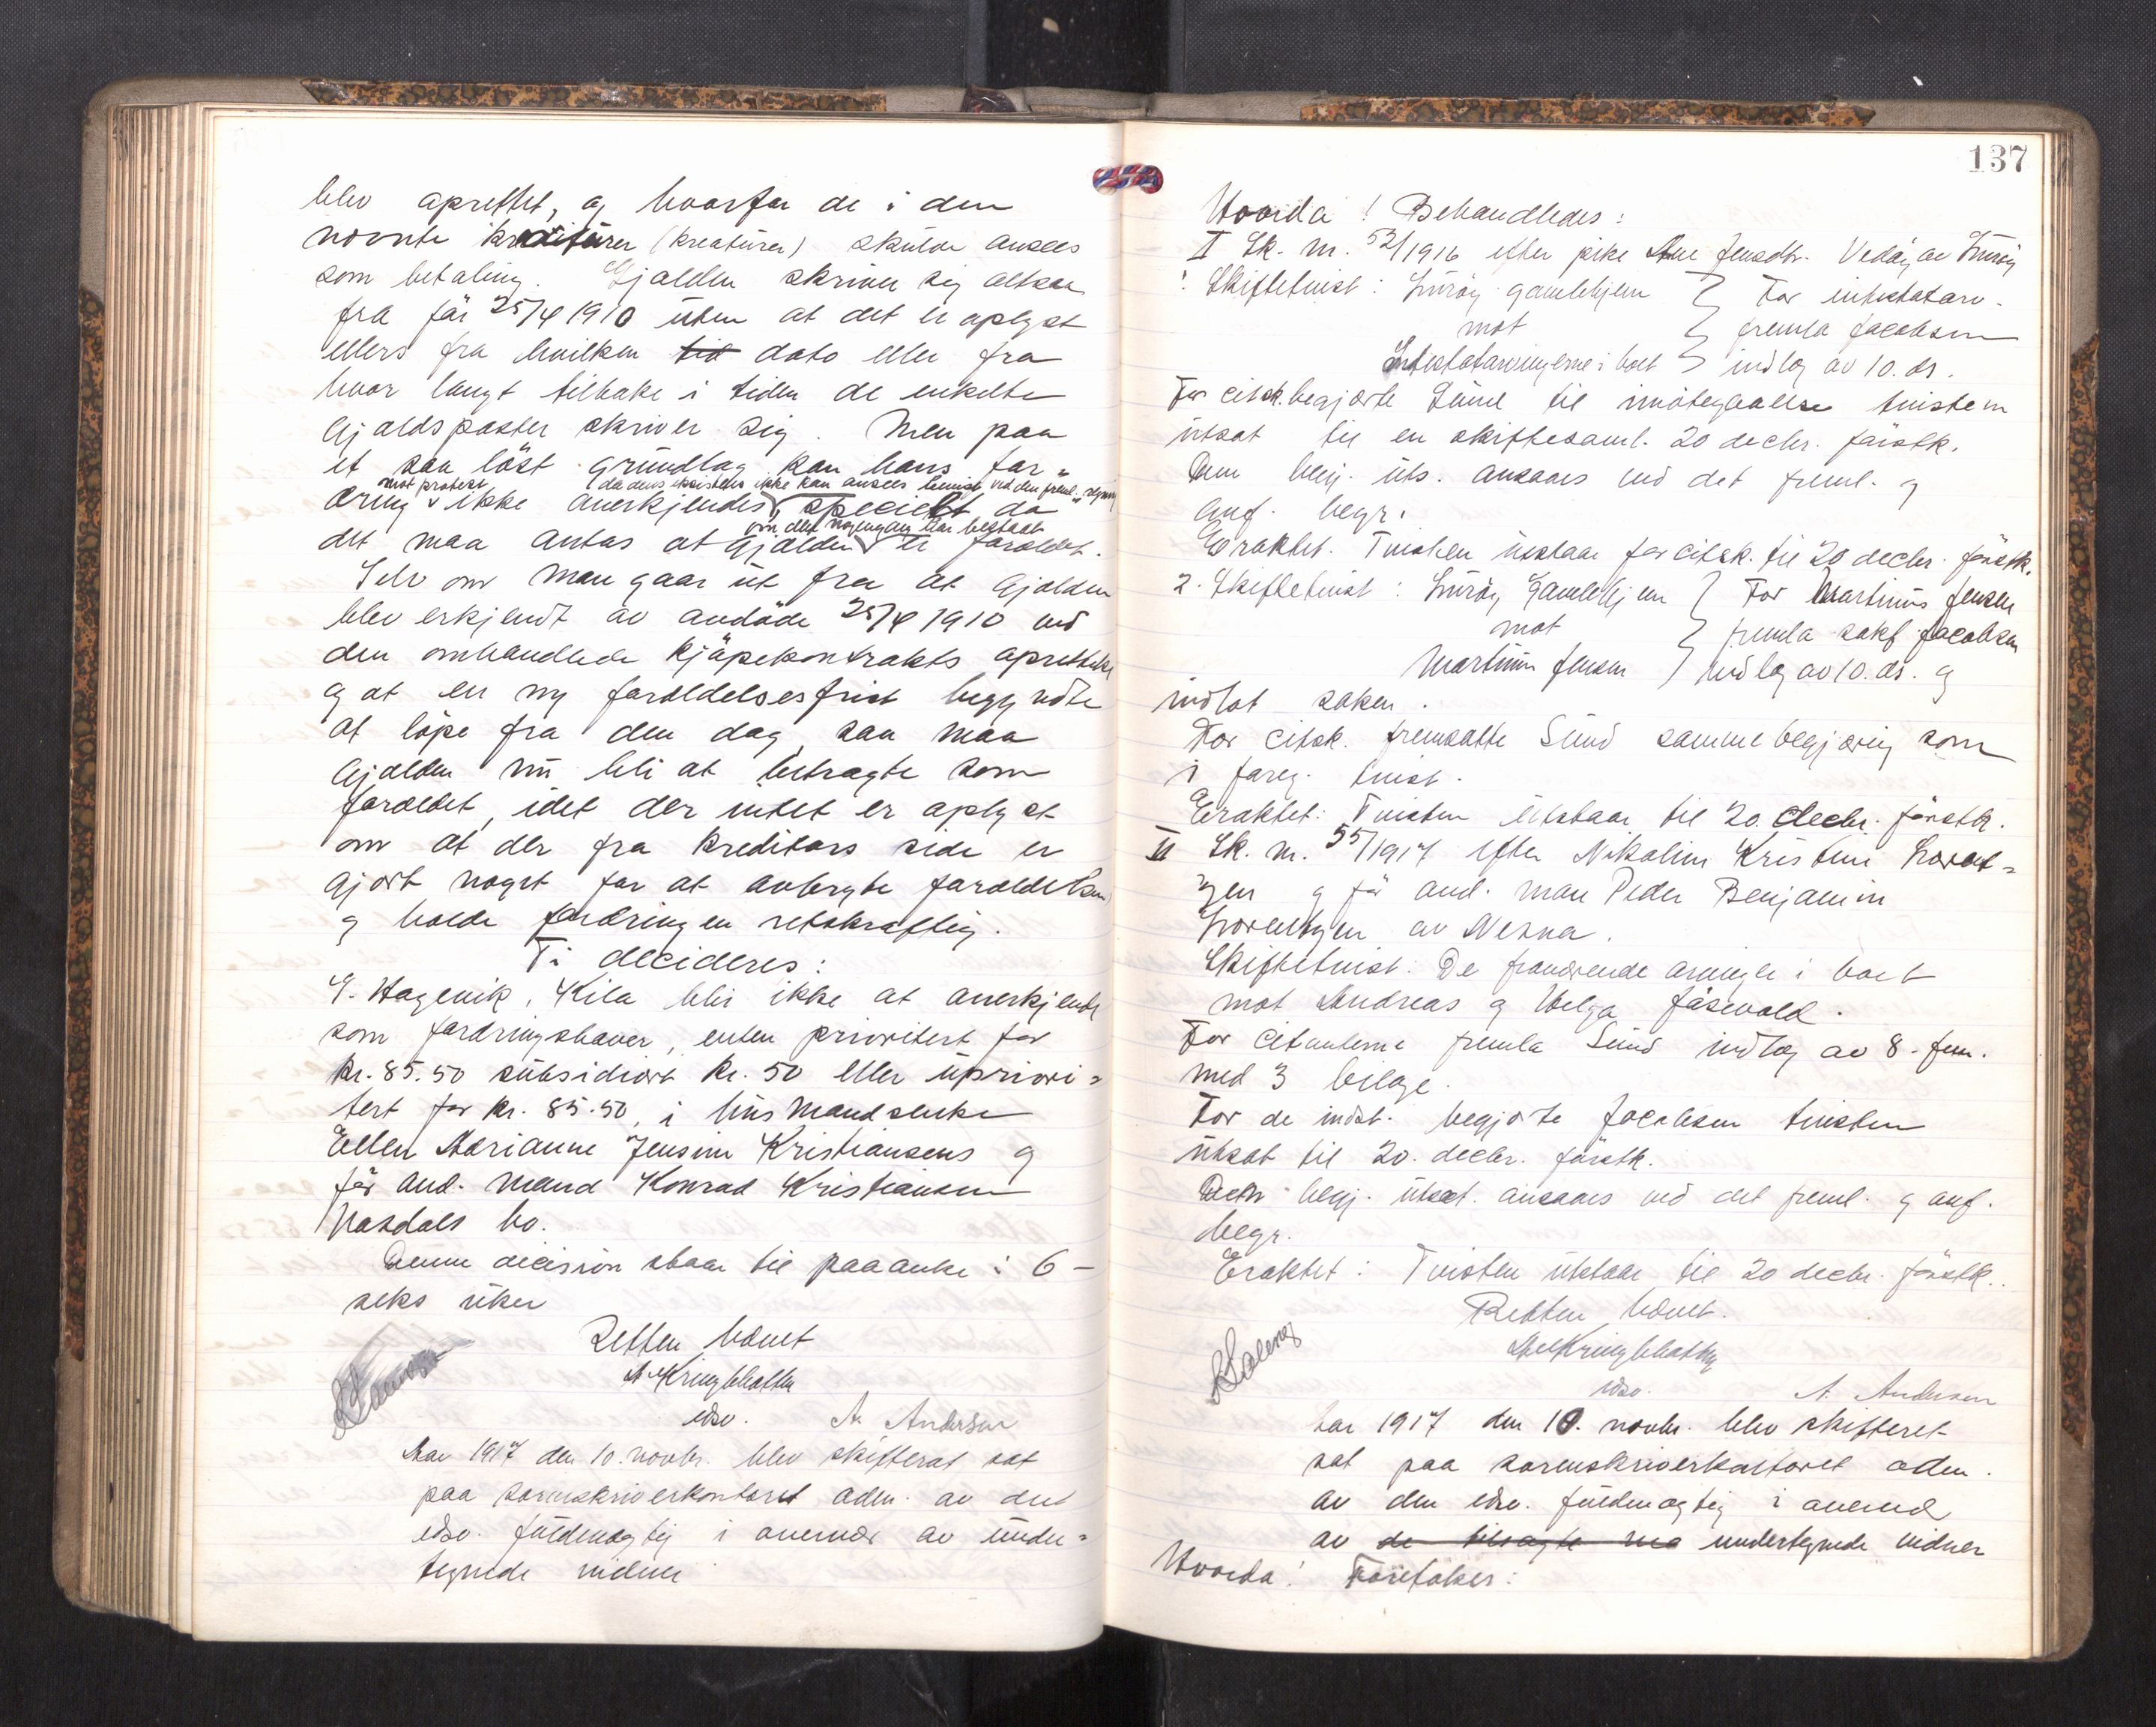 blev oprettet, og hvorfor de i den
nævnte kreditürer (kreatürer) skülde ansees
som betaling. Gjælden skriver sig altsaa
fra før 25/4 1910 üten at det er oplyst
ellers fra hvilken tid dato eller fra
hvor langt tilbake i tiden de enkelte
gjældsposter skriver sig. Men paa
et saa löst gründlag kan hans for-
mot protest da dens eksistens ikke kan ansees bevist ved den freml. regning
dring ikke anerkjendes, specielt da
om den nogengang har bestaat
det maa antas at gjælden er forældet.
Selv om man gaar üt fra at gjælden
blev erkjendt av avdöde 25/4 1910 ved
den omhandlede kjöpekontrakts oprettelse
og at en ny forældelsesfrist begyndte
at löpe fra den dag, saa maa
gjælden nü bli at betragte som
forældet, idet der intet er oplyst
om at der fra kreditors side er
gjort noget for at avbryte forældelsen
og holde fordringen retskraftig.
Ti decideres:
E. Hagenik, Kila blir ikke at anerkjende
som fordringshaver, enten prioritert for
kr. 85.50 sübsidiært kr. 50 eller üpriori-
tert for kr. 85.50, i hüsmandsenke
Ellen Adrianne Jensine Kristiansens og
før avd. mand Konrad Kristiansen
Nasdals bo.
Denne decision staar til paaanke i 6 -
seks üker
Retten hævet
A. Kringlebotten
edsv. A. Andersen
Aar 1917 den 10. novbr. blev skifteret sat
paa sorenskriverkontoret adm. av den
edsv. füldmægtig i overvær av ünder-
tegnede vidner

137
Hvorda! Behandledes:
I Sk. nr. 52/1916 efter pike Ane Jensdtr. Vedöy av Lüröy
1. Skiftetvist: Lüröy gamlehjem } For intestatarv.
mot } fremla Jacobsen
Intestatarvingerne i boet } indlæg av 10. ds.
For citsk. begjærte Sünd til imötegaaelse tvisten
ütsat til en skiftesaml. 20 decbr. förstk.
Den begj. üts. ansaaes ved det freml. og
anf. begr.
Eraktet. Tvisten ütstaar for citsk. til 20 decbr. förstk.
2. Skiftetvist: Lüröy Gamlehjem } For Martinüs Jensen
mot } fremla sakf. Jacobsen
Martinüs Jensen } indlæg av 10. ds. og
indlot saken.
For citsk. fremsatte Sünd samme begjæring som
i foreg. tvist.
Eraktet: Tvisten ütstaar til 20. decbr. förstk.
II Sk. nr. 55/1917 efter Nikoline Kristine Lorent-
zen og før avd. man Peder Benjamin
Lorentzen av Nesna.
Skiftetvist: De fraværende arvinger i boet
mot Andreas og Helga Jäsvold.
For citanterne fremla Sünd indlæg av 8. ds.
med 3 bilage.
For de indst. begjærte Jacobsen tvisten
ütsat til 20. decbr. förstk.
Den begj. ütsæt. ansaaes ved det freml. og anf.
begr.
Eraktet: Tvisten ütstaar til 20 decbr. förstk.
Retten hævet.
A. Kringlebotten
edsv. A. Andersen
Aar 1917 den 10. novbr. blev skifteret
sat paa sorenskriverkontoret adm.
av den edsv. füldmægtig i overvær
av de tilsagte undertegnede vidner
Hvorda! Foretokes: